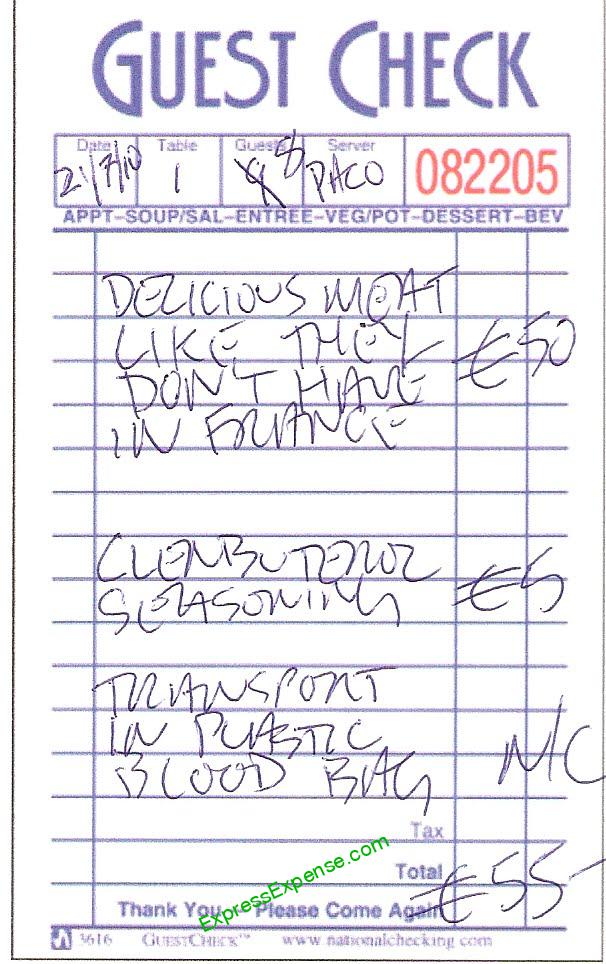 GUEST CHECK
Date Table Guests Server
21/7/10 1 8 PACO 082205
APPT–SOUP/SAL–ENTREE–VEG/POT–DESSERT–BEV
DELICIOUS MEAT
LIKE THEY €50
DON'T HAVE
IN FRANCE
CLENBUTEROL
SEASONING €5
TRANSPORT
IN PLASTIC
BLOOD BAG N/C
Tax
Total €55-
Thank You – Please Come Again
ExpressExpense.com
3616 GUESTCHECK™ www.nationalchecking.com